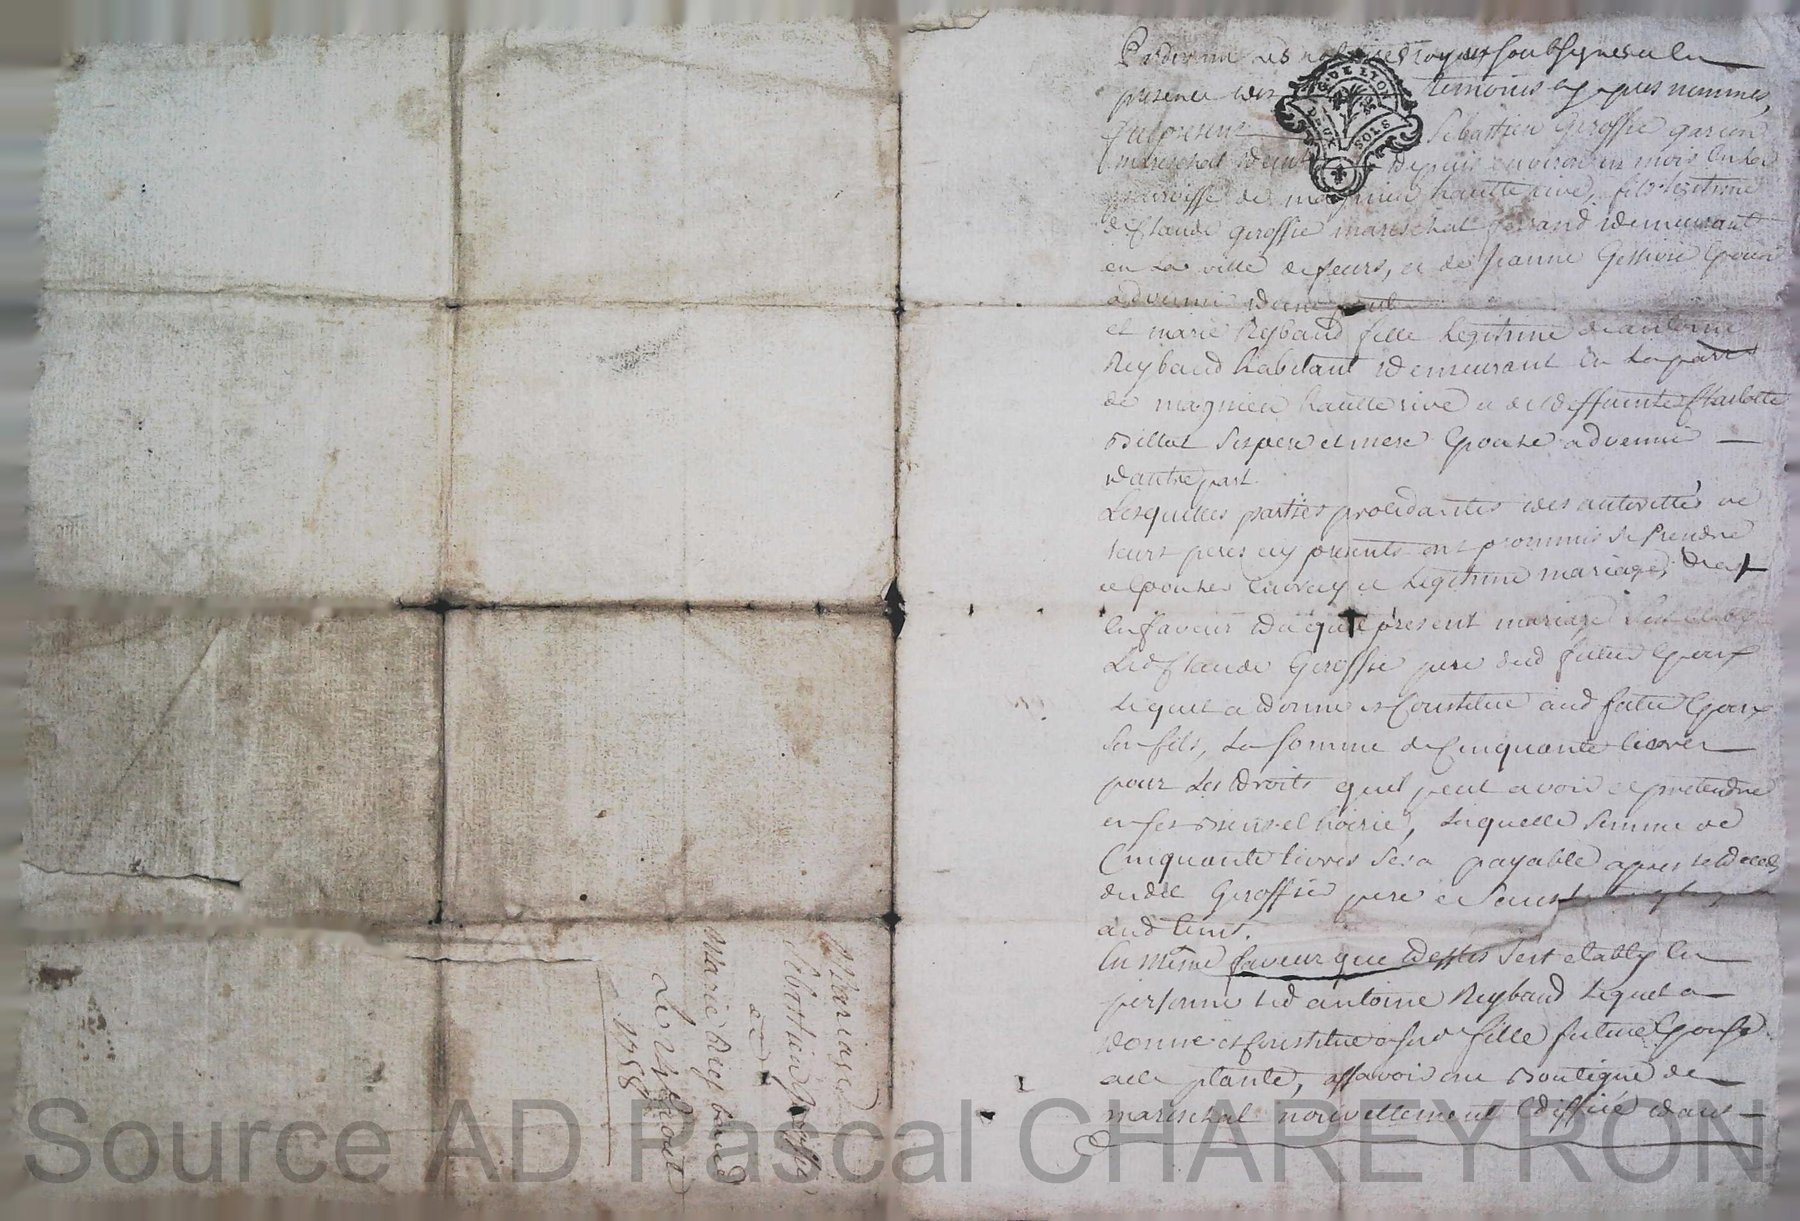 Pardevant Les notaires royaux soubsignes et en
presence des temoins cy apres nommes,
fut present Sebastien Giroffie garçon
mareschal demt depuis environ un mois en La
parroisse de magnieu hautte rive, fils legitime
de Claude giroffie mareschal ferrand demeurant
en La ville de feurs, et de Jeanne Époux
advenir d'une part
et marie Reybaud fille Legitime de antoine
Reybaud habitant demeurant en La parr
de magnieu hautte rive et de deffuinte Charlotte
Billat ses pere et mere Épouse advenir
d'autre part.
Lesquelles parties procedantes des autorittés de
leurs peres cy presents ont prommis se Prendre
et Epouser en vray et Legitime mariage,
En faveur duquel present mariage s'est
Led Claude Giroffie pere dud futur Epoux
Lequel a donné et Constitué aud futur Epoux
son fils, La somme de Cinquante livres
pour Les droits quil peut avoir et pretendre
en ses Biens et hoirie, Laquelle somme de
Cinquante livres sera payable apres le deceds
dudit Giroffie pere et
aud tems.
En même faveur que dessus s'est etably en
personne Led antoine Reybaud Lequel a
donné et Constitué a sad fille future Epouse
acte plante, assavoir une Boutique de
mareschal nouvellement Ediffiée dans
Mariage
Sebastien giroffie
et
Marie Reybaud
Le 24 aout
1758
DE LYON
SOLS
Source AD Pascal CHAREYRON